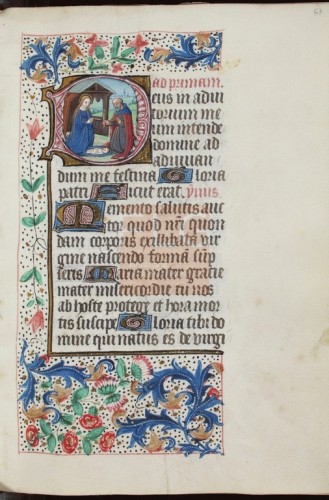 ad primam.
Deus in adiu
torium me
um intende
domine ad
adiuuan
dum me festina Gloria
patri Sicut erat. ymis
Memento salutis auc
tor quod nrī quon
dam corporis exillibata vir
gine nascendo formā sūp
seris Maria mater gratie
mater misericordie tu nos
ab hoste protege et hora mor
tis suscipe Gloria tibi do
mine qui natus es de virgi